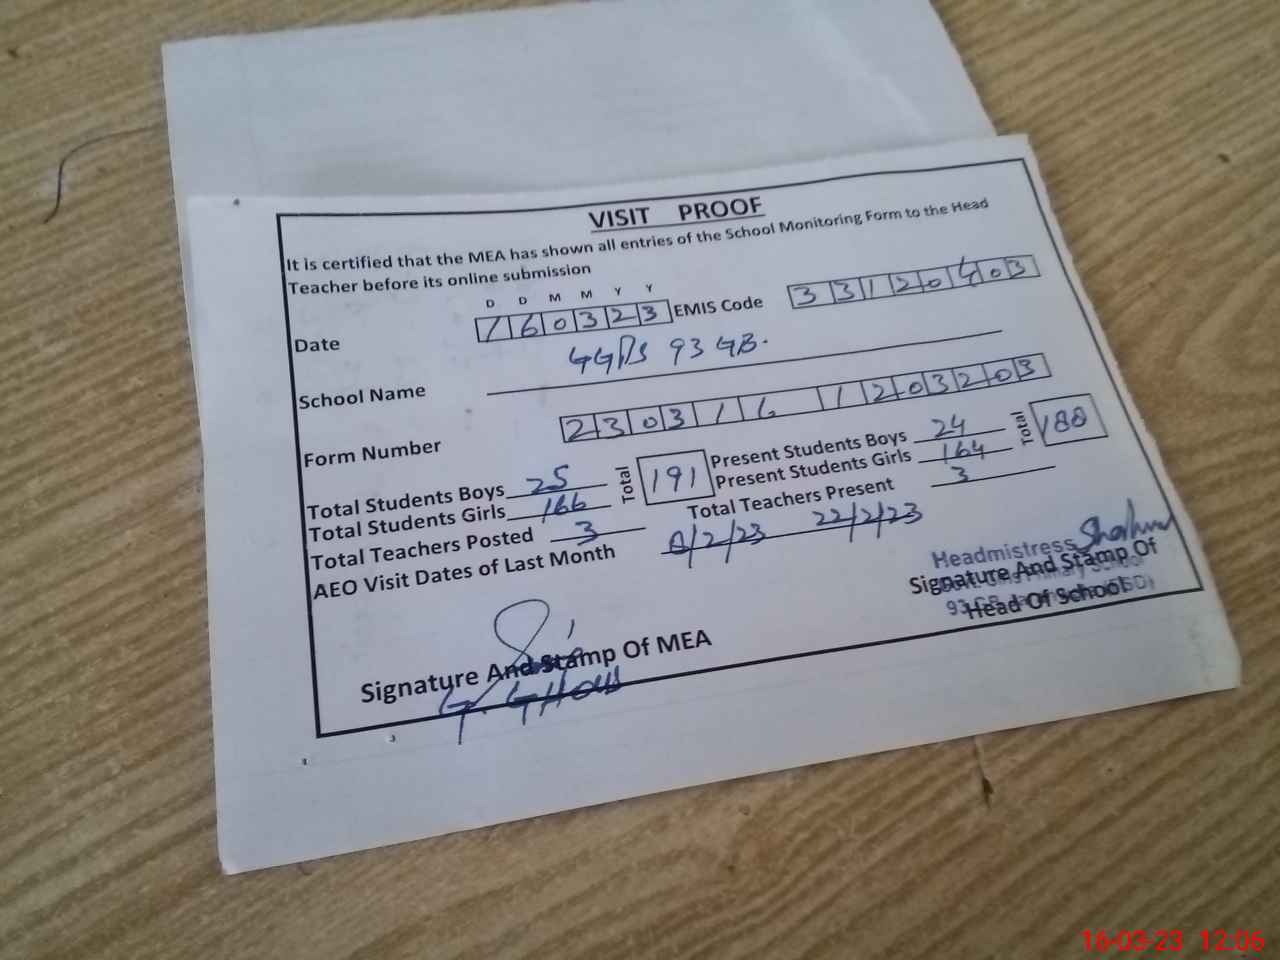 VISIT PROOF
It is certified that the MEA has shown all entries of the School Monitoring Form to the Head
Teacher before its online submission
D D M M Y Y
Date 160323 EMIS Code 33120403
School Name GGPS 93 GB.
Form Number 230316 1203203
Total Students Boys 25 Total 191 Present Students Boys 24 Total 188
Total Students Girls 166 Present Students Girls 164
Total Teachers Posted 3 Total Teachers Present 3
AEO Visit Dates of Last Month 8/2/23 22/2/23
Headmistress
Signature And Stamp Of MEA
Signature And Stamp Of
Head Of School
16-03-23 12:06